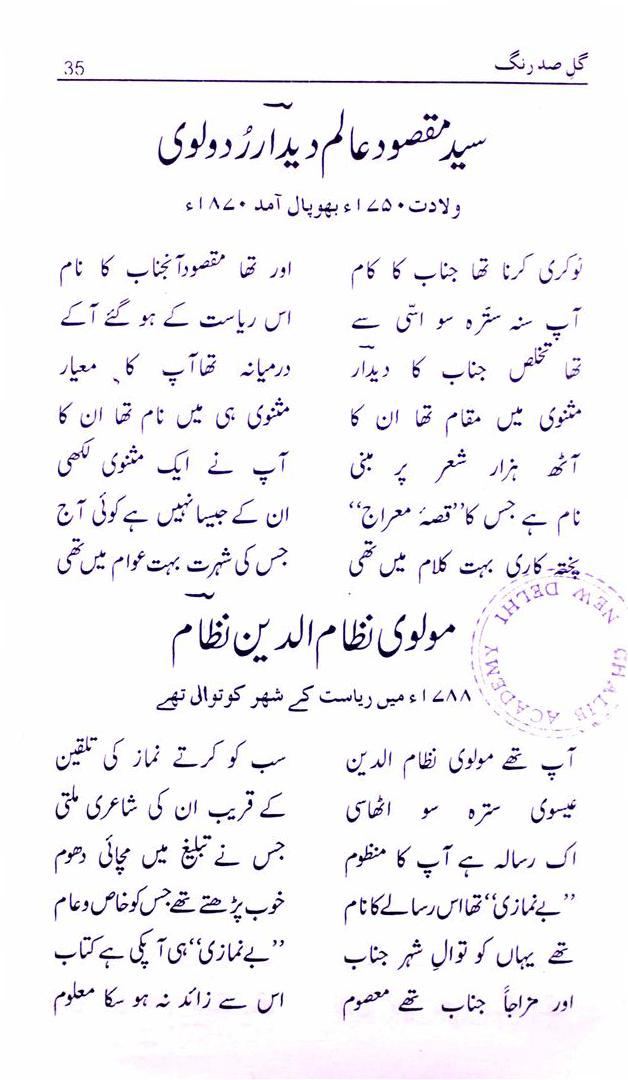 گلِ صد رنگ 35
سید مقصود عالم دیدار رُدولوی
ولادت ۱۷۵۰ء بھوپال آمد ۱۸۷۰ء
نوکری کرنا تھا جناب کا کام اور تھا مقصود آنجناب کا نام
آپ سنہ سترّہ سو اسّی سے اس ریاست کے ہو گئے آکے
تھا تخلص جناب کا دیدار درمیانہ تھا آپ کا معیار
مثنوی میں مقام تھا ان کا مثنوی ہی میں نام تھا ان کا
آٹھ ہزار شعر پر مبنی آپ نے ایک مثنوی لکھی
نام ہے جس کا ’’قصۂ معراج‘‘ ان کے جیسا نہیں ہے کوئی آج
پختہ کاری بہت کلام میں تھی جس کی شہرت بہت عوام میں تھی
مولوی نظام الدین نظام
۱۷۸۸ء میں ریاست کے شہر کوتوالی تھے
آپ تھے مولوی نظام الدین سب کو کرتے نماز کی تلقین
عیسوی سترہ سو اٹھاسی کے قریب ان کی شاعری ملتی
اک رسالہ ہے آپ کا منظوم جس نے تبلیغ میں مچائی دھوم
’’بے نمازی‘‘ تھا اس رسالے کا نام خوب پڑھتے تھے جس کو خاص و عام
تھے یہاں کوتوالِ شہر جناب ’’بے نمازی‘‘ ہی آپکی ہے کتاب
اور مزاجاً جناب تھے معصوم اس سے زائد نہ ہو سکا معلوم
GHALIB ACADEMY NEW DELHI